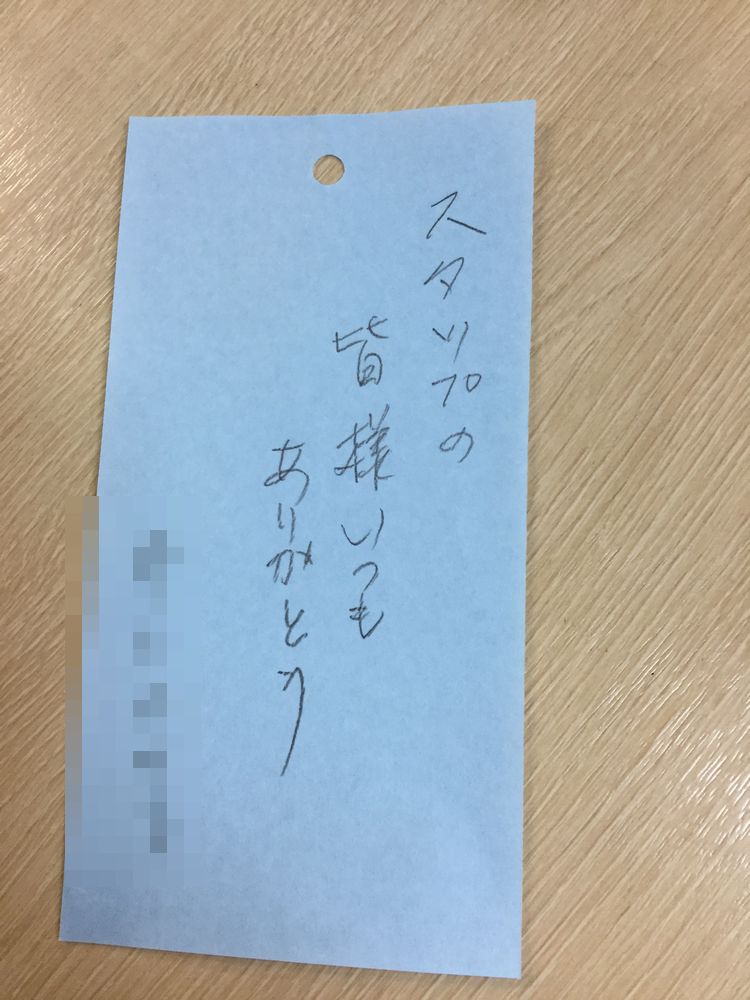 スタップの
皆様いつも
ありがとう